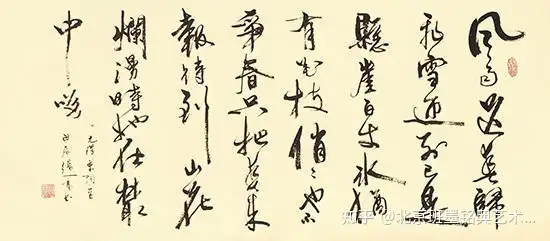 风雨送春歸
飛雪迎春到已是
懸崖百丈冰猶
有花枝俏俏也不
争春只把春来
報待到山花
爛漫時她在叢
中咲
毛澤東詞
知乎 @北京墨铭典艺术...